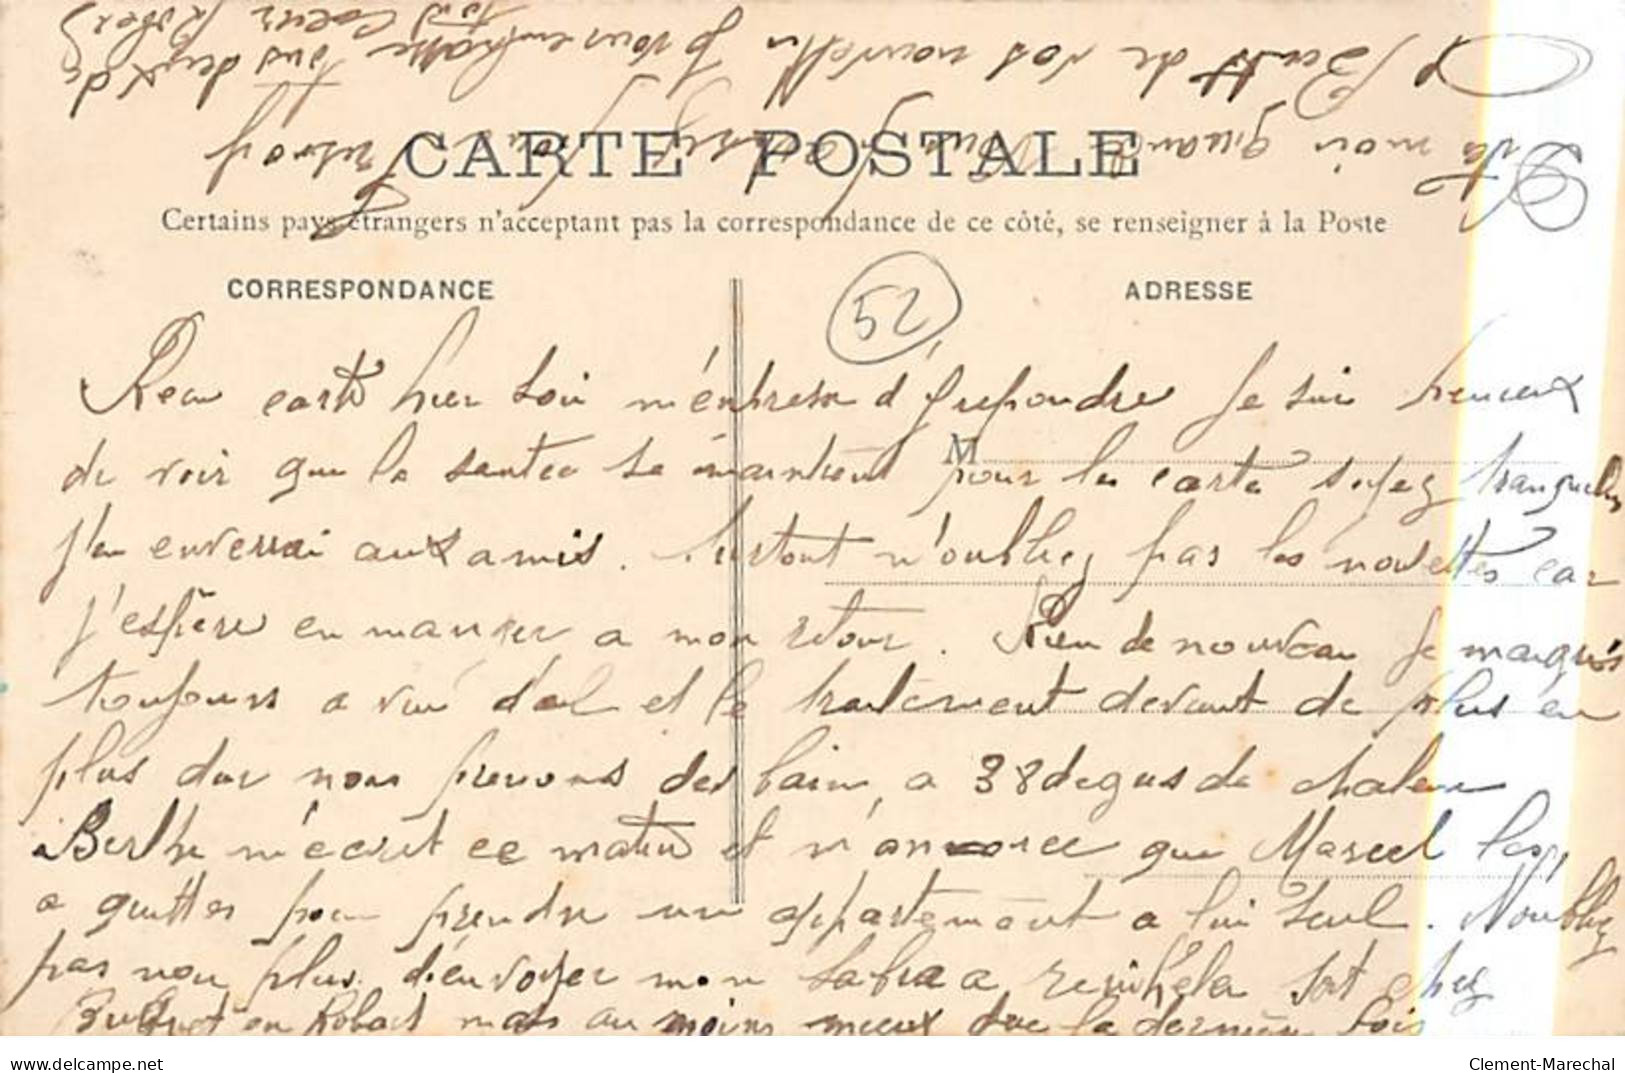 CARTE POSTALE
Certains pays étrangers n'acceptant pas la correspondance de ce côté, se renseigner à la Poste
CORRESPONDANCE
ADRESSE
52
M
Recu carte hier soir m'empresse d'y repondre Je suis heureux
de voir que la santee se maintient pour les cartes soyez tranquilles
j'en enverrai aux amis. Surtout n'oubliez pas les navettes car
j'espère en manger a mon retour. Rien de nouveau Je maigris
toujours a vue d'œl et le traitement devient de plus en
plus dur nous prenons des bains a 38 degres de chaleur
Berthe m'ecrit ce matin et m'annonce que Marcel les
a quittes pour prendre un appartement a lui seul. N'oubliez
pas non plus d'envoyer mon tabac a
ou Robert mais au moins mieux que la dernière fois
de vos nouvelles Je vous embrasse tous deux de
tout Cœur Robert
moi quand
Delcampe.net
Clement-Marechal